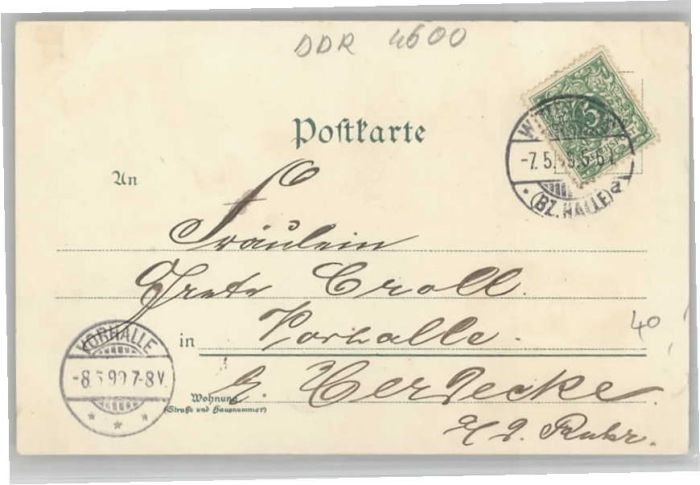 DDR 4600
5
WITTEN
-7.5. 5-6
(BZ. HALLE) a
Postkarte
An
Fräulein
Grete Croll.
in Vorhalle.
b. Herdecke
Wohnung
(Straße und Hausnummer)
a/d. Ruhr.
40
VORHALLE
-8.5.99.7-8V.